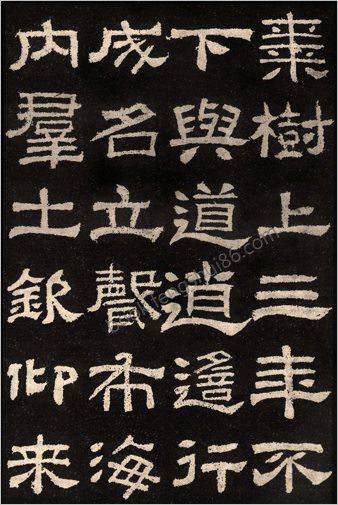 棗樹上三年不
下與道逍遙行
成名立聲布海
内羣士欽仰来